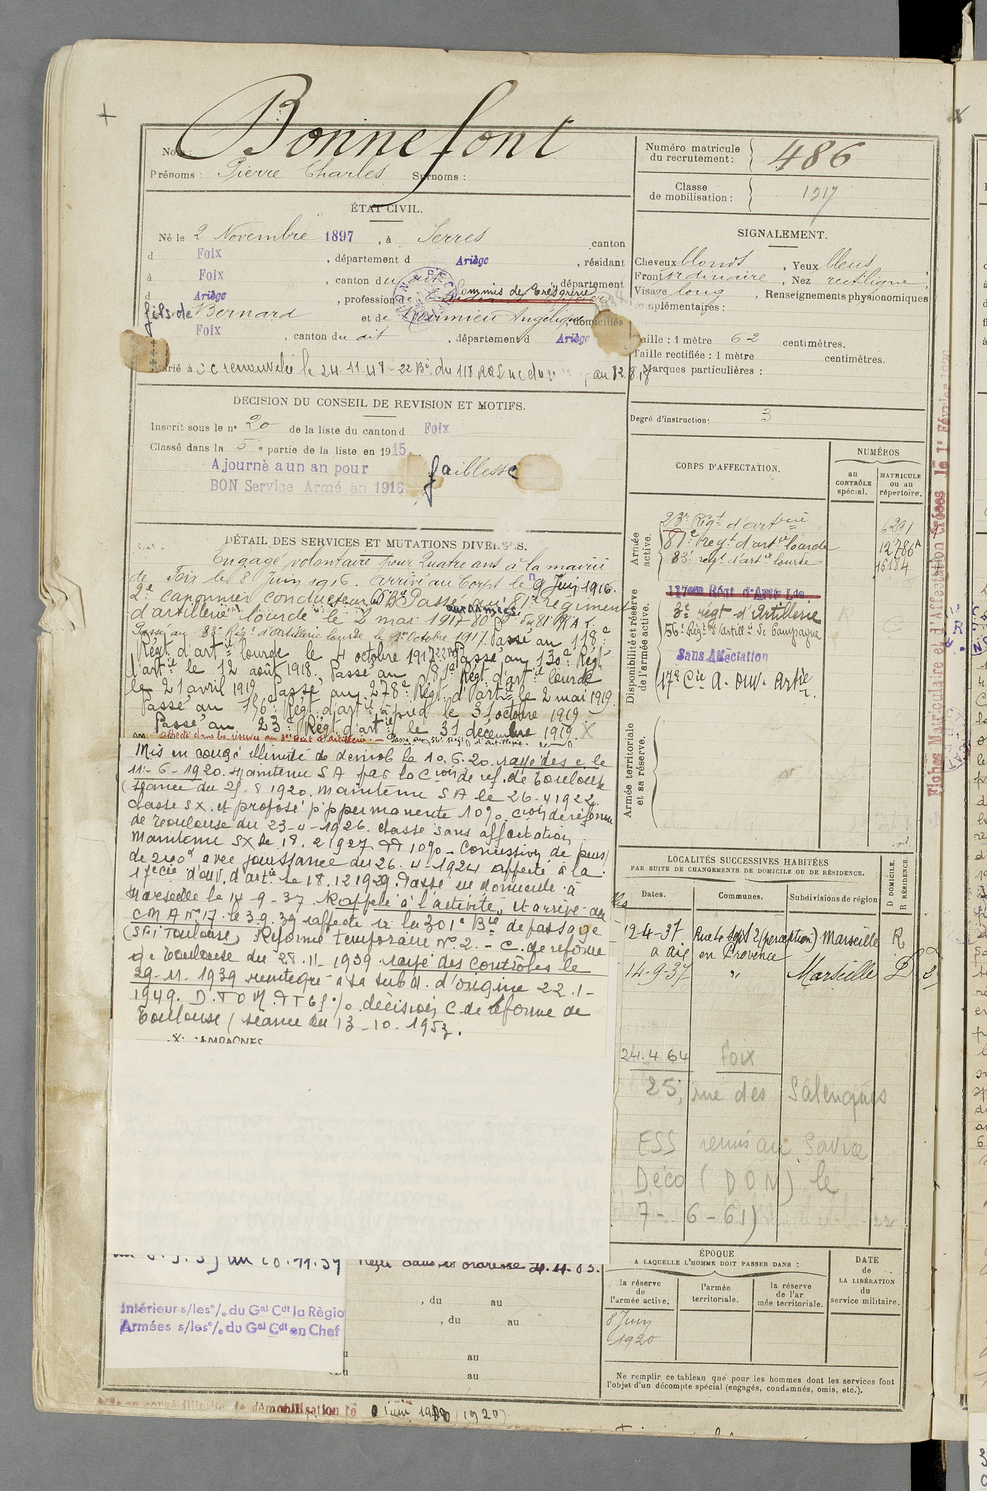 Bonnefont
Nom
Prénoms : Pierre Charles Surnoms :
Numéro matricule du recrutement : 486
Classe de mobilisation : 1917
ÉTAT CIVIL.
Né le 2 Novembre 1897, à Serres, canton
d Foix, département d Ariège, résidant
à Foix, canton du dit, département
d Ariège, profession d commis de trésorerie
fils de Bernard et de Angélique, domiciliés
à Foix, canton du dit, département d Ariège
Marié à
SIGNALEMENT.
Cheveux blonds, Yeux bleus
Front ordinaire, Nez rectiligne
Visage long, Renseignements physionomiques
complémentaires :
Taille : 1 mètre 62 centimètres.
Taille rectifiée : 1 mètre centimètres.
Marques particulières :
Degré d'instruction : 3
DECISION DU CONSEIL DE REVISION ET MOTIFS.
Inscrit sous le n° 20 de la liste du canton d Foix
Classé dans la 5e partie de la liste en 1915
Ajourné a un an pour faiblesse
BON Service Armé en 1916
DÉTAIL DES SERVICES ET MUTATIONS DIVERSES.
Engagé volontaire pour quatre ans à la mairie
de Foix le 8 Juin 1916. Arrivé au Corps le 9 Juin 1916.
2e canonnier conducteur Passé au 81e régiment
d'artillerie lourde le 2 mai 1917
Passé au 83e Régt d'artillerie lourde le 1er Octobre 1917 Passé au 118e
Régt d'art. lourde le 4 octobre 1917 Passé au 130e Régt
d'artie le 12 août 1918. Passé au 81e Régt d'art. lourde
le 21 avril 1919 Passé au 278e Régt d'artie le 2 mai 1919.
Passé au 156e Régt d'artie à pied le 3 octobre 1919
Passé au 23e Régt d'artie le 31 décembre 1919. X
Mis en congé illimité de démob le 10.6.20. rayé des c. le
11-6-1920. Maintenu S A par la Con de ref. de Toulouse
(séance du 27.8 1920. Maintenu S A le 26-4 1922
classé S X. et proposé p° p permanente 10% Con de réforme
de Toulouse du 23-4-1926. classé sans affectation
Maintenu S X le 18.2 1927 10% - Concession de pens
de 240f avec jouissance du 26.4-1924 affecté à la
17e Cie d'ouv. d'artie le 18.12 1929. Passé en domicile à
Marseille le 14-9-37 Rappelé à l'activité et arrivé au
C M A N° 17. le 3.9.39 affecté à la 301e Bie de passage
(SFI Toulouse) Réformé temporaire N° 2. - C. de réforme
de Toulouse du 28.11-1939 rayé des contrôles le
29-11.1939 réintégré à sa subd. d'origine 22.1-
1949. 65% décision C. de réforme de
Toulouse (séance du 13-10.1953.
CAMPAGNES
Intérieur s/les°/. du Gal Cdt la Régio
Armées s/les°/. du Gal Cdt en Chef
, du au
, du au
au
au
CORPS D'AFFECTATION.
NUMÉROS
au CONTRÔLE spécial.
MATRICULE ou au répertoire.
Armée active.
23e Régt d'artie 6291
81e Régt d'artie lourde 12786
83e régt d'artie lourde 15184
Disponibilité et réserve de l'armée active.
3e régt d'Artillerie
56e Régt d'Artill. de Campagne
Sans Affectation
17e Cie d. ouv. Artie
Armée territoriale et sa réserve.
Fiches Matriculaire et d'Affectation créées le 1er Février
LOCALITÉS SUCCESSIVES HABITÉES
PAR SUITE DE CHANGEMENTS DE DOMICILE OU DE RÉSIDENCE.
Dates. Communes. Subdivisions de région
D DOMICILE. R RÉSIDENCE.
12-4-37 Rue 4 Sept 2 (perception) Marseille R
à Aix en Provence
14-9-37 " Marseille D
24.4 64 Foix
25, rue des Salenques
ESS remis au Service
Déco (DOM) le
7-6-61)
ÉPOQUE
A LAQUELLE L'HOMME DOIT PASSER DANS :
la réserve de l'armée active.
l'armée territoriale.
la réserve de l'armée territoriale.
DATE de LA LIBÉRATION du service militaire.
8 Juin 1920
Ne remplir ce tableau que pour les hommes dont les services font
l'objet d'un décompte spécial (engagés, condamnés, omis, etc.).